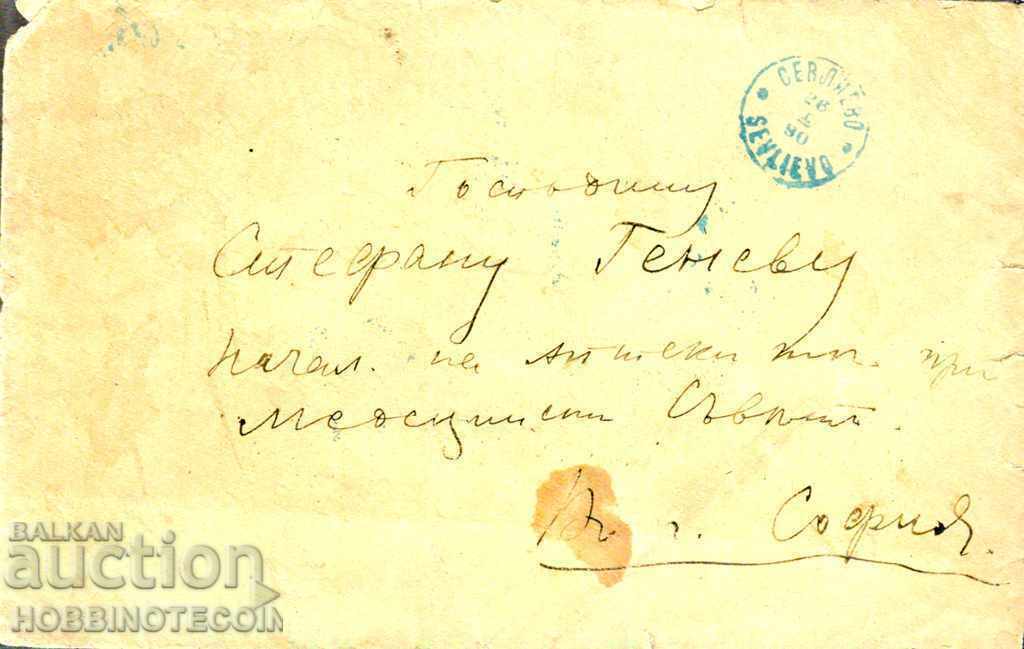 СЕВЛИЕВО
26
X
90
SEVLIEVO
Господину
Стефану Геневу
Начал. на Аптеки ти. при
Медицински Съвѣтъ.
Въ г. София.
BALKAN
auction
HOBBINOTECOIN